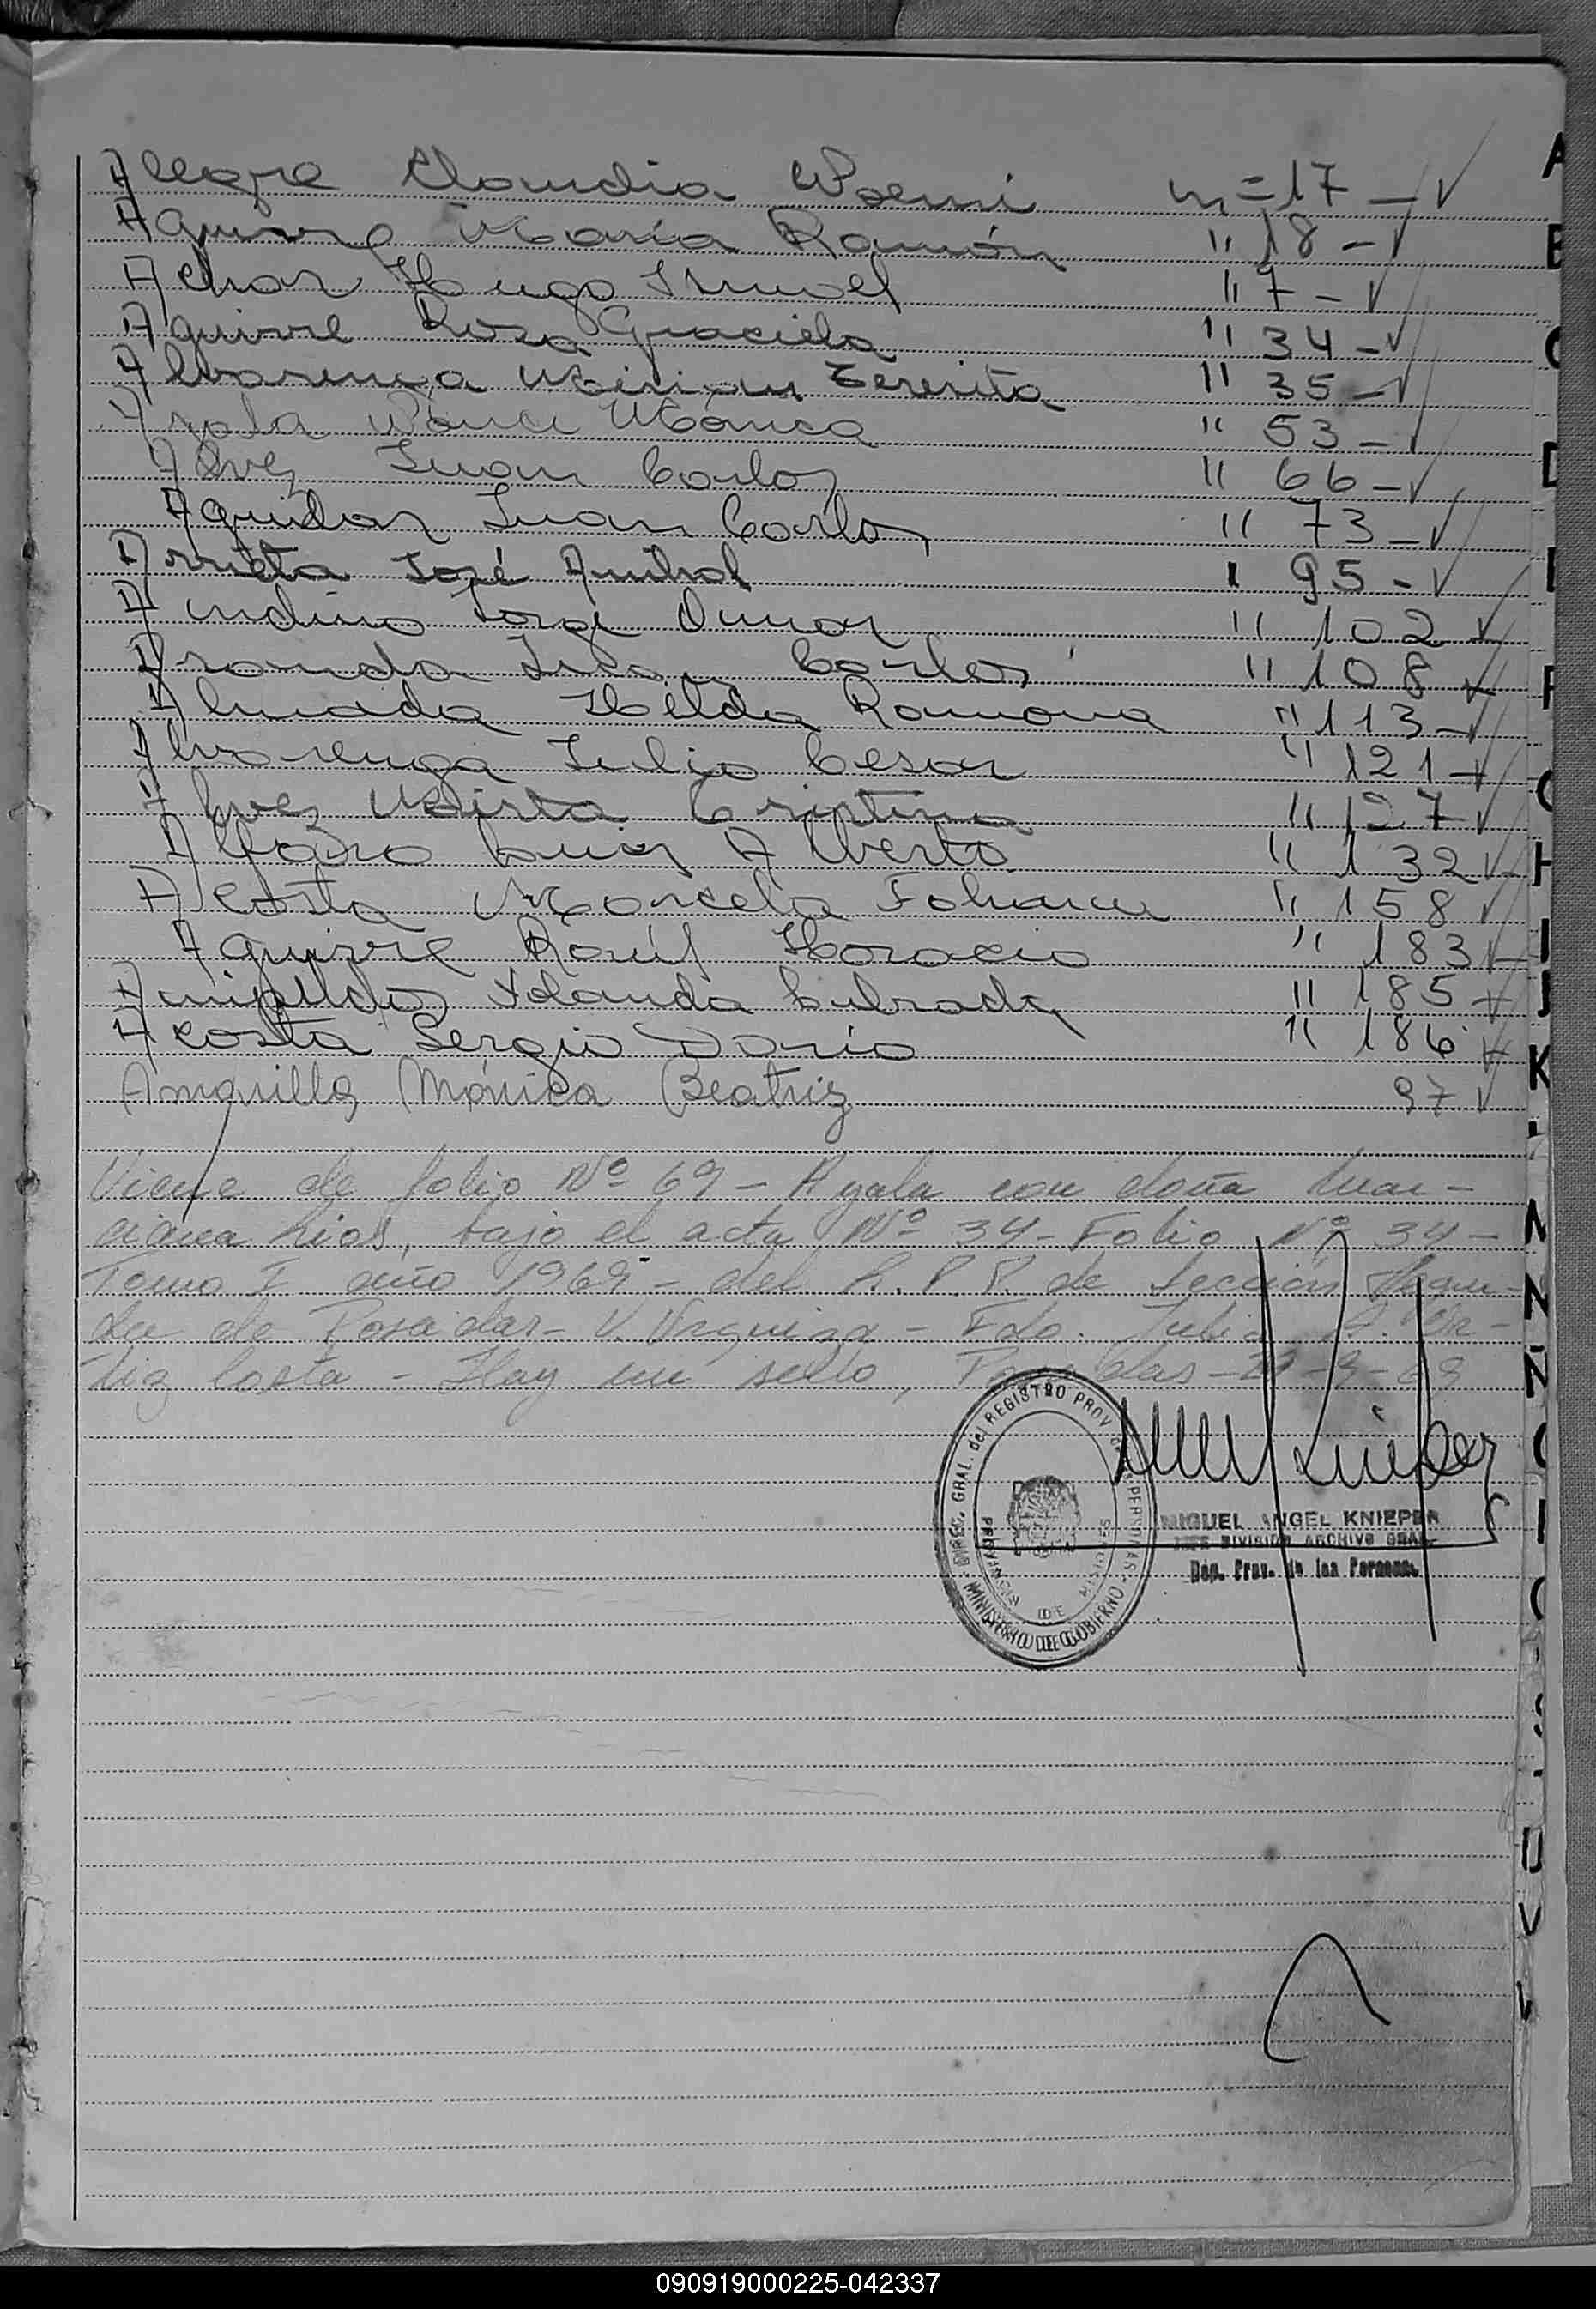 Alegre Claudia Noemi n=17 -
Aguirre María Ramón " 18 -
Achar Hugo Ismael " 7 -
Aguirre Rosa Graciela " 34 -
Alvarenga Mirian Teresita " 35 -
Ayala Mónica " 53 -
Alvez Juan Carlos " 66 -
Aguilar Juan Carlos " 73 -
Arrieta José Anibal " 95 -
Andino Jorge Omar " 102
Aranda Juan Carlos " 108
Almada Hilda Ramona " 113 -
Alvarenga Julio Cesar " 121 -
Alvez Mirta Cristina " 127
Alfaro Luis Alberto " 132
Acosta Marcela Fabiana " 158
Aguirre Raúl Horacio " 183
Yolanda Librada " 185
Acosta Sergio Dario " 186
Amarilla Mónica Beatriz 97
Viene de folio Nº 69 - Ayala con doña
Rios, bajo el acta Nº 34 - Folio Nº 34 -
Tomo I año 1969 - del R.P.P. de Sección Segun-
da de Posadas - V. Urquiza - Fdo. Julio A. Or-
tiz Costa - Hay un sello, Posadas - 9 - 69
DIREC. GRAL. del REGISTRO PROV. de las PERSONAS
PROVINCIA DE MISIONES
MINISTERIO DE GOBIERNO
MIGUEL ANGEL KNIEPER
JEFE DIVISION ARCHIVO GRAL.
Prov. de las Personas
A
B
C
D
E
F
G
H
I
J
K
M
N
N
Ñ
O
S
U
V
090919000225-042337